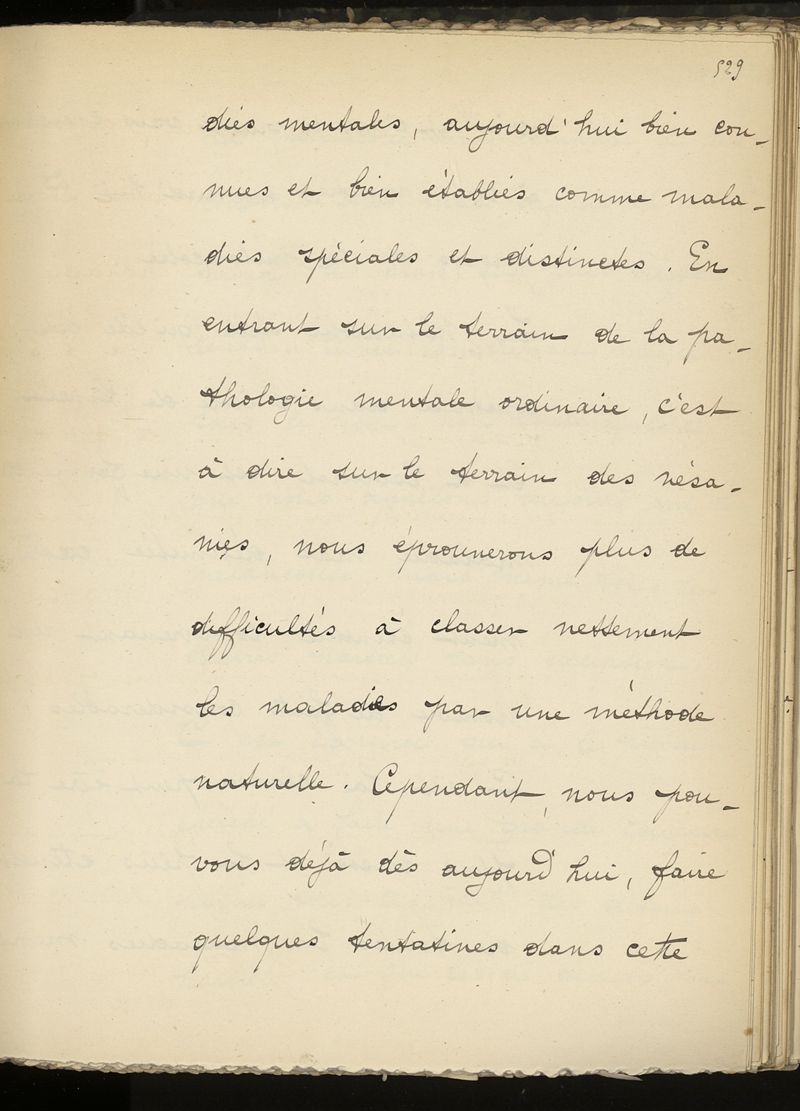 529
diés mentales, aujourd'hui bien con-
nues et bien établiés comme mala-
diés spéciales et distinctes. En
entrant sur le terrain de la pa-
thologie mentale ordinaire, c'est
à dire sur le terrain des vésa-
nies, nous éprouverons plus de
difficultés à classer nettement
les maladies par une méthode
naturelle. Cependant, nous pou-
vons déjà dès aujourd'hui, faire
quelques tentatives dans cette